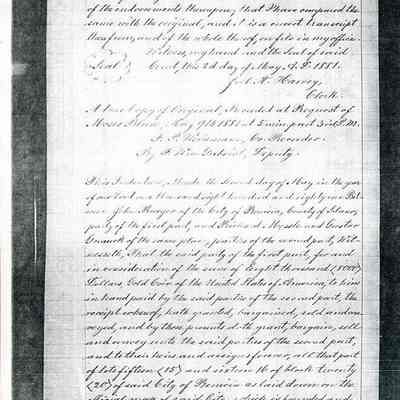 of the endorsements thereon; that I have compared the
same with the original, and it is a correct transcript
therefrom, and of the whole thereof, on file in my office
Witness, my hand and the Seal of said
Seal Court, this 2d day of May A.D. 1881.
Clerk.
A true Copy of Original, Recorded at Request of
May 9th 1881 at 5 min. past 3 o'cl. P.M.
Co. Recorder.
By Deputy.
This Indenture, Made the Second day of May in the year
of our Lord one thousand eight hundred and eighty one Bet
ween John of the City of Benicia, County of Solano,
party of the first part, and Richard and Gustav
Gnauck of the same place, parties of the second part, Wit-
nesseth, That the said party of the first part, for and
in consideration of the sum of Eight thousand (8000)
Dollars, Gold Coin of the United States of America, to him
in hand paid by the said parties of the second part, the
receipt whereof, hath granted, bargained, sold and con
veyed, and by these presents doth grant, bargain, sell
and convey unto the said parties of the second part,
and to their heirs and assigns forever, all that part
of lots fifteen (15) and sixteen 16 of block twenty
(20) of said City of Benicia as laid down on the
Official map of said City, which is bounded and